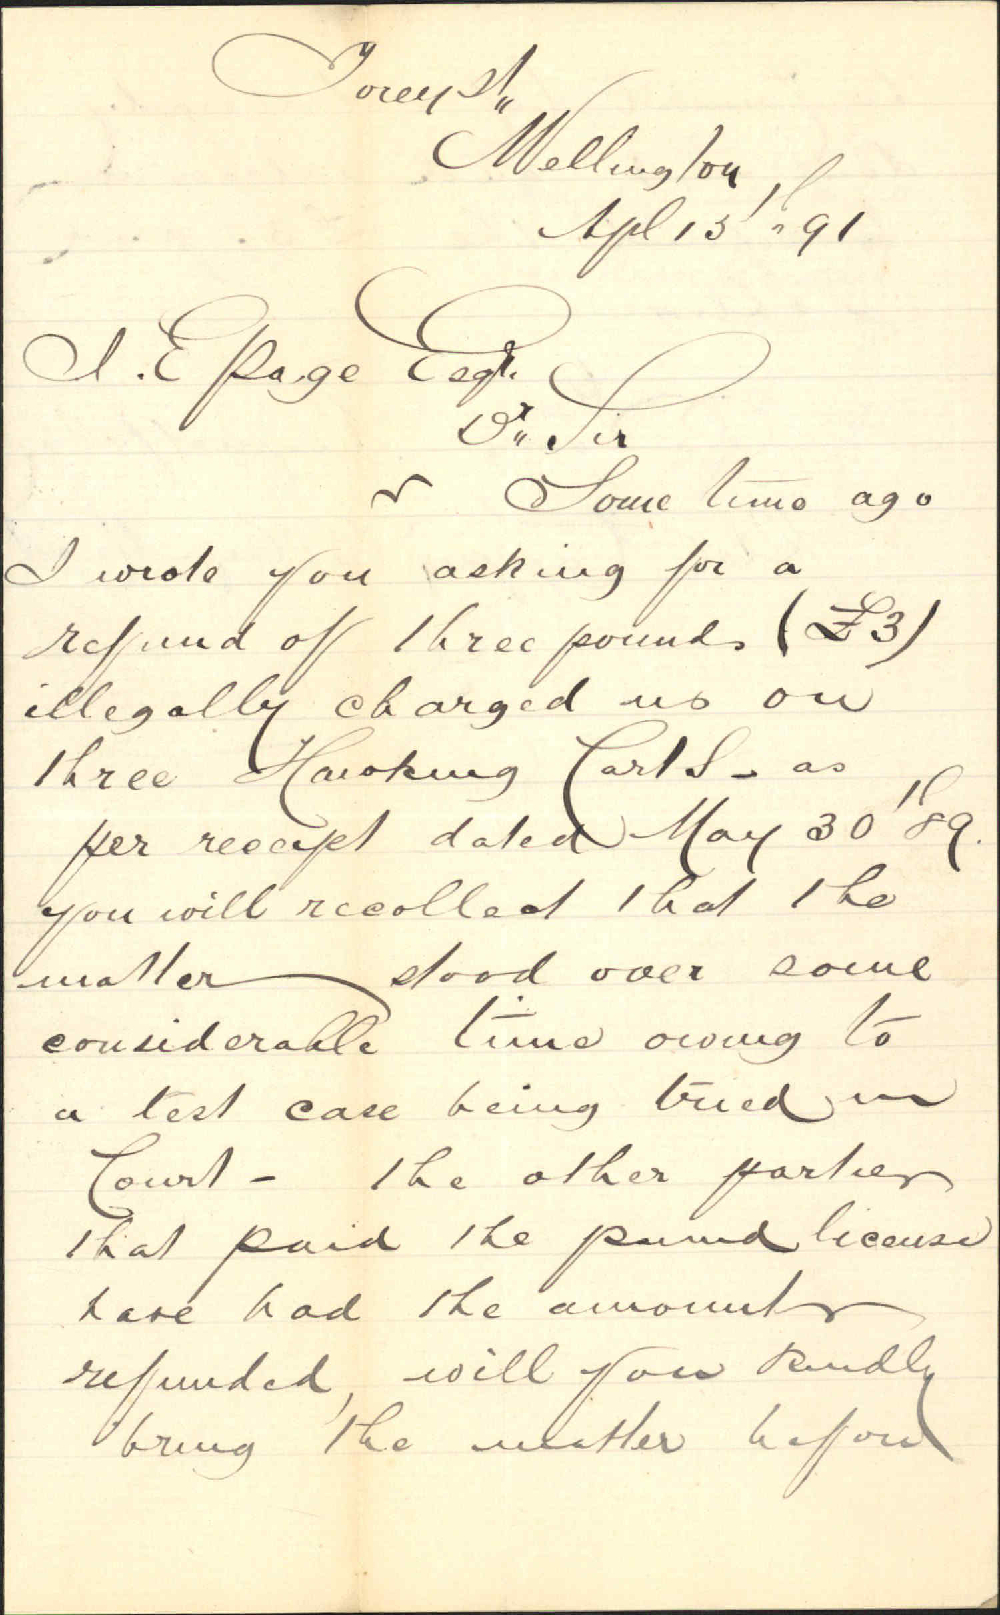 Torey St,,
Wellington
Apl 13th ,, 91
J. E Page Esqr.
Dr,, Sir
Some time ago
I wrote you asking for a
refund of three pounds (£3)
illegally charged us on
three Hawking Carts - as
per receipt dated May 30th 89.
you will recollect that the
matter stood over some
considerable time owing to
a test case being tried in
Court - the other parties
that paid the pound license
have had the amounts
refunded, will you kindly
bring the matter before